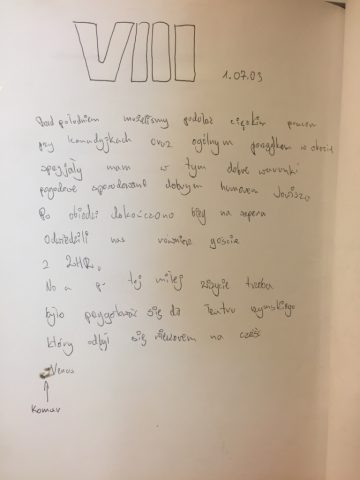 VIII
1.07.03
Pod południem musieliśmy podołać ciężkim pracom
przy komendyjkach oraz ogólnym porządkom w obozie
sprzyjały nam w tym dobre warunki
pogodowe spowodowane dobrym humorem Jowisza
Po obiedzie dokończono bieg na
Odwiedzili nas również goście
z ZHR.
No a po tej miłej wizycie trzeba
było przygotować się do Teatru rzymskiego
który odbył się wieczorem na cześć
Venus
Komar